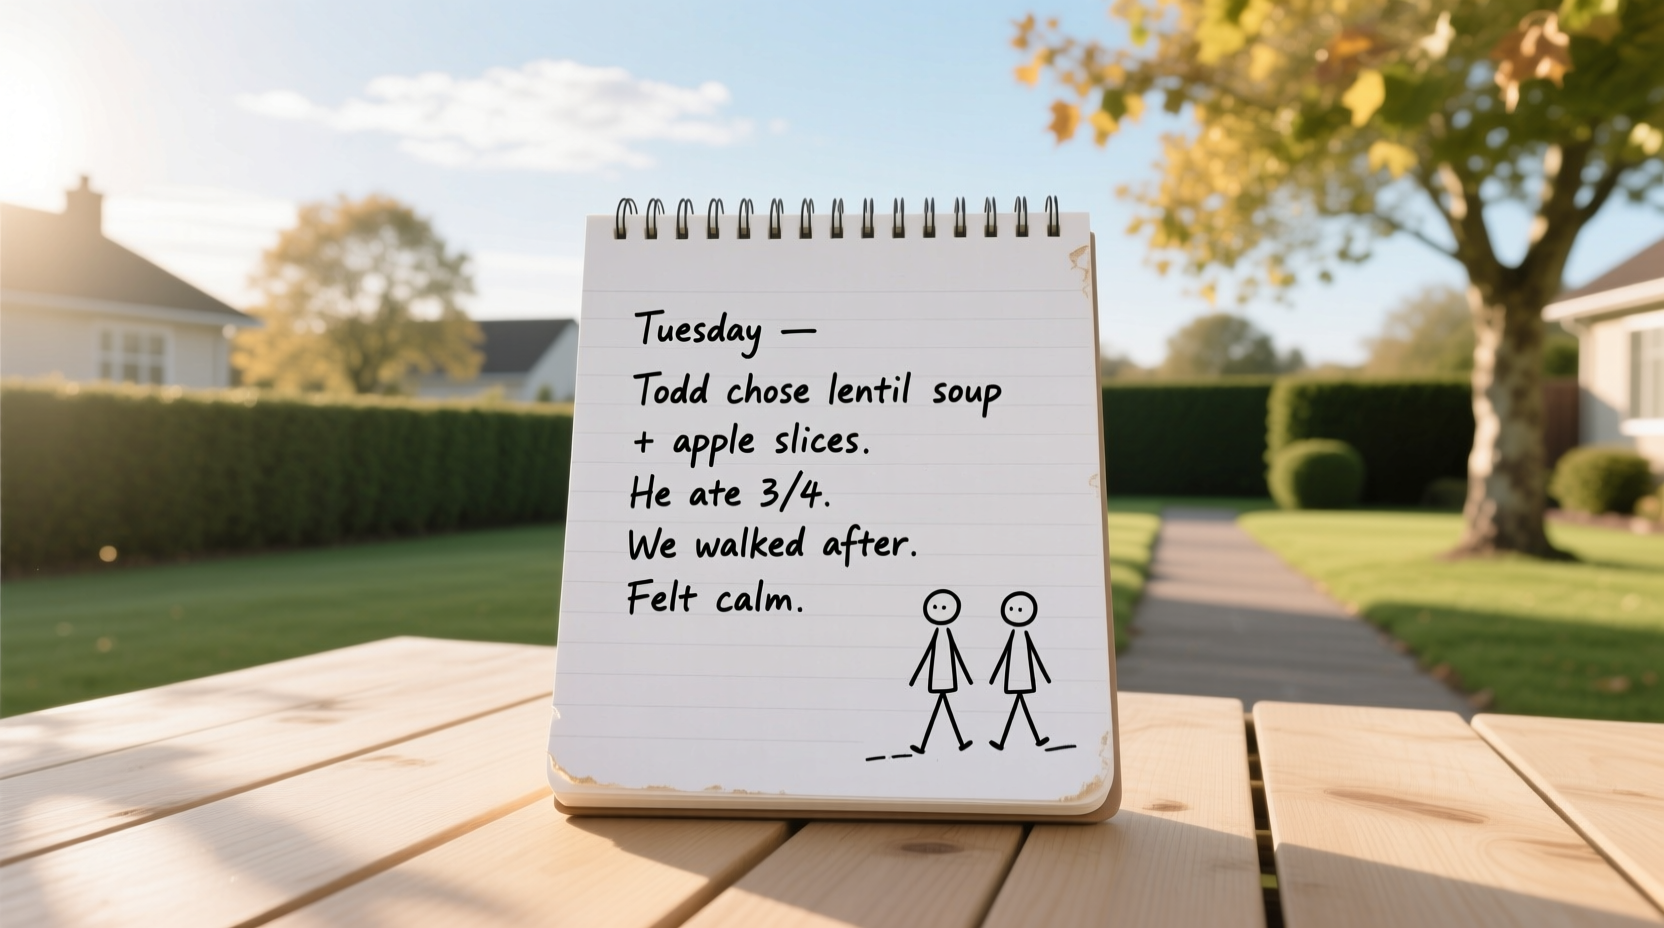 Tuesday —
Todd chose lentil soup
+ apple slices.
He ate 3/4.
We walked after.
Felt calm.